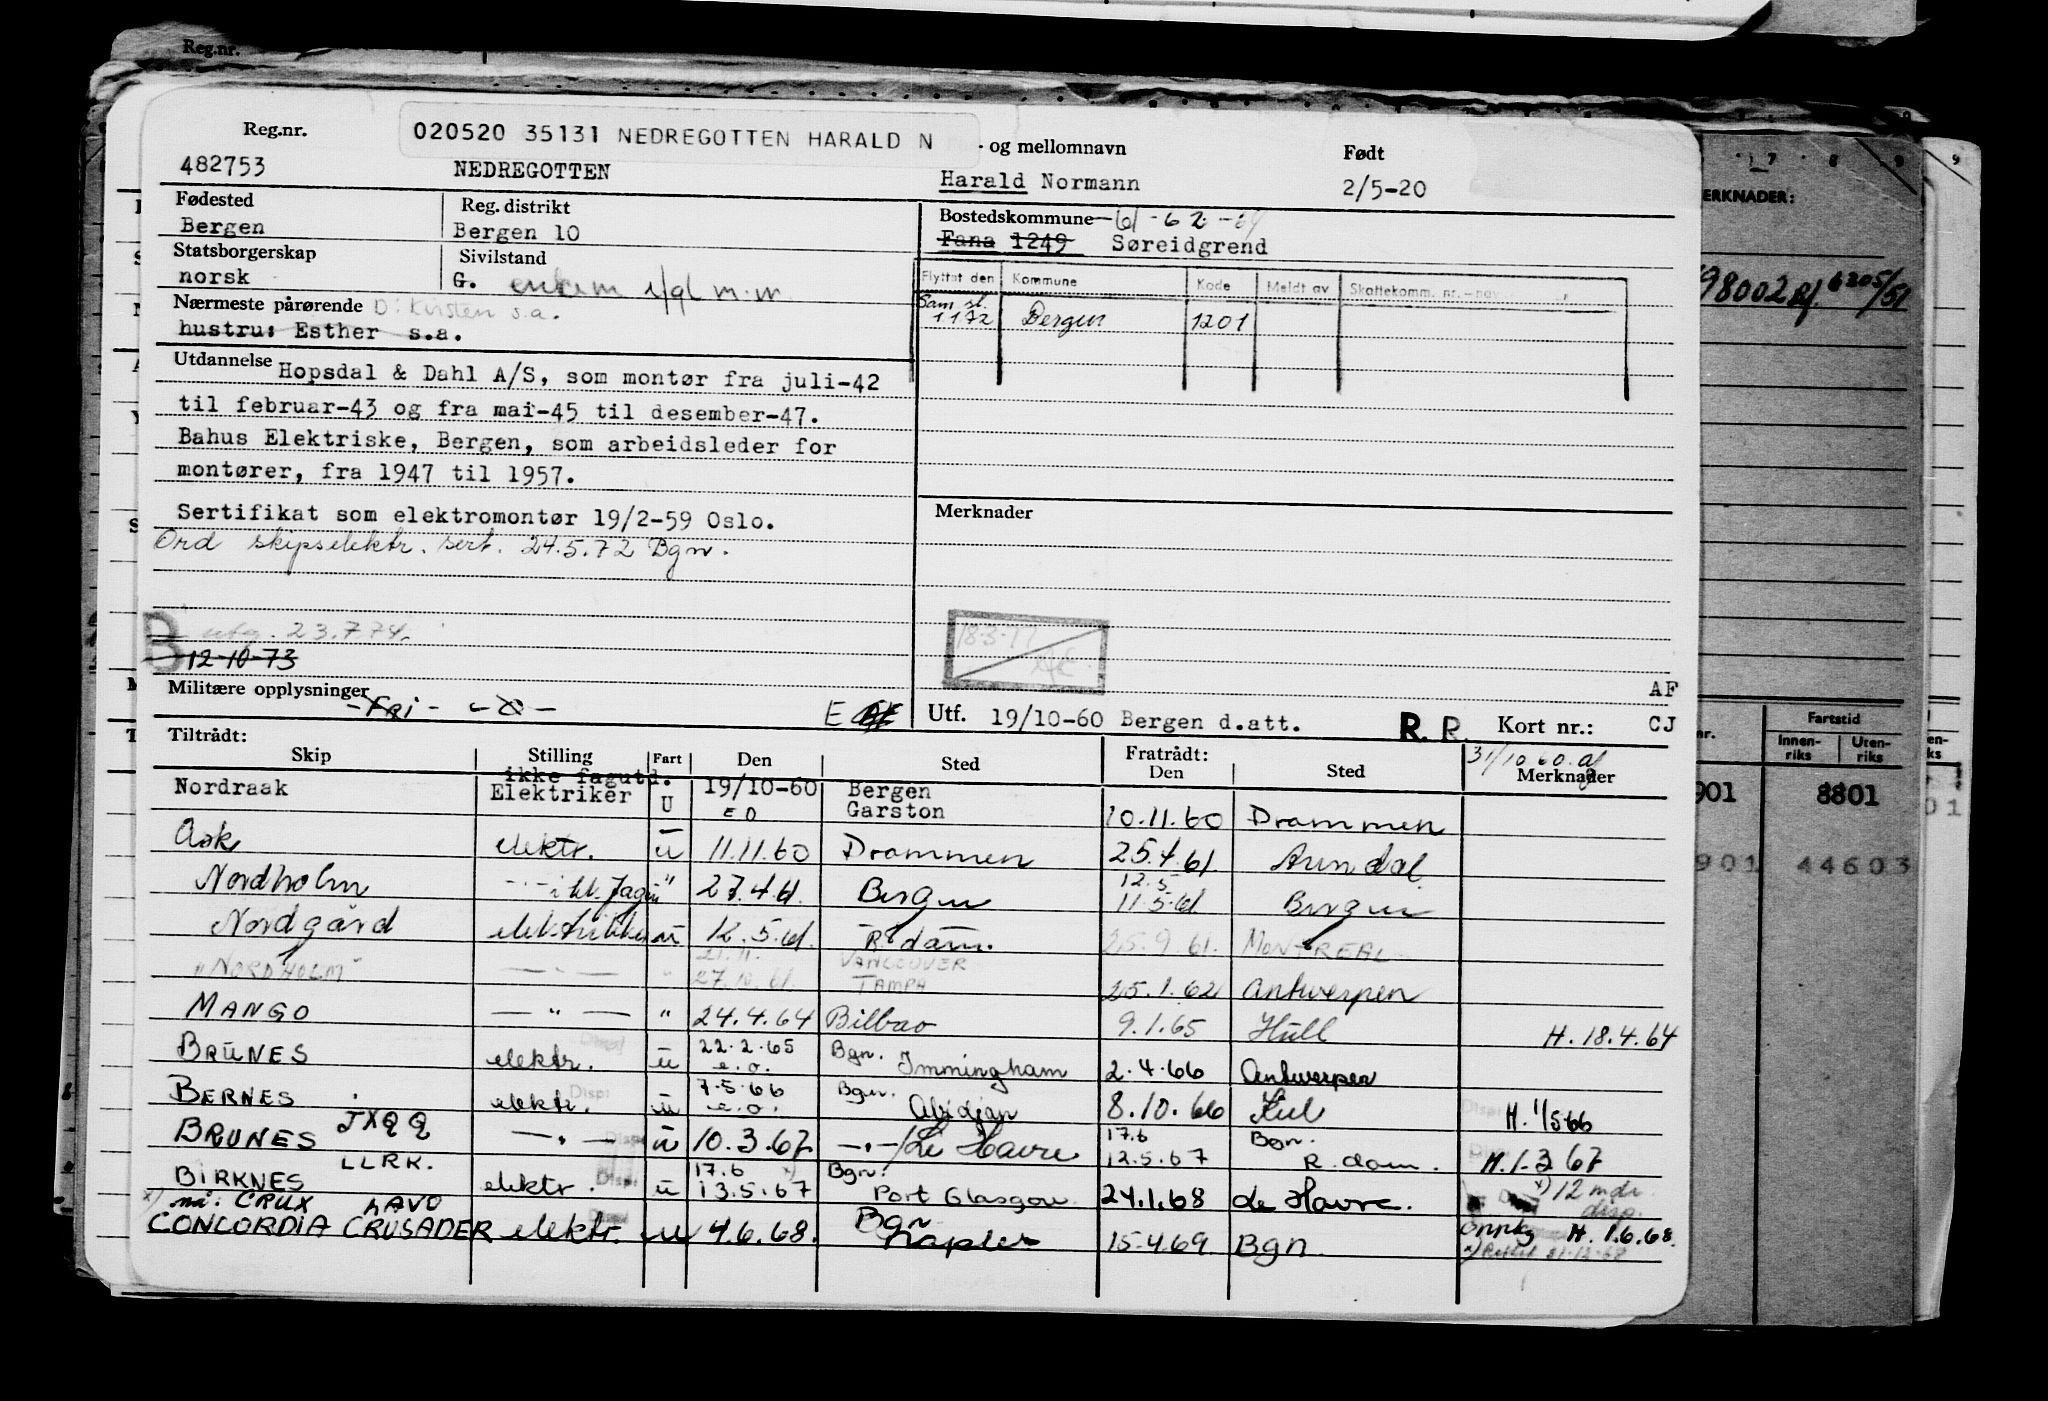 Reg.nr.
Reg.nr.
020520 35131 NEDREGOTTEN HARALD N
- og mellomnavn
Født
482753
NEDREGOTTEN
Harald Normann
2/5-20
Fødested
Reg. distrikt
Bostedskommune -61-62-64
Bergen
Bergen 10
Fana 1249 Søreidgrend
Statsborgerskap
Sivilstand
norsk
G.
Flyttet den Kommune Kode Meldt av Skattekomm. nr.
Nærmeste pårørende D: Kirsten s.a.
1172 Bergen 1201
hustru: Esther s.a.
Utdannelse Hopsdal & Dahl A/S, som montør fra juli-42
til februar-43 og fra mai-45 til desember-47.
Bahus Elektriske, Bergen, som arbeidsleder for
montører, fra 1947 til 1957.
Sertifikat som elektromontør 19/2-59 Oslo.
Ord skipselektr. sert. 24.5.72 Bgn.
Merknader
utg. 23.7.74.
12-10-73
Militære opplysninger
AF
E
Utf. 19/10-60 Bergen d.att.
R. R.
Kort nr.: CJ
Tiltrådt:
Skip Stilling Fart Den Sted
Fratrådt: Den Sted Merknader
31/10 60
ikke fagutd.
Nordraak Elektriker U 19/10-60 Bergen
ED Garston 10.11.60 Drammen
Ask elektr. u 11.11.60 Drammen 25.4.61. Arendal
12.5
Nordholm " 27.4.61. Bergen 11.5.61 Bergen
Nordgård u 12.5.61. R.dam. 25.9.61. MONTREAL
21.11. VANCOUVER
"NORDHOLM" — " — " 27.10.61. TAMPA 25.1.62 Antwerpen
MANGO — " — " 24.4.64 Bilbao 9.1.65 Hull H. 18.4.64
22.2.65 Bgn.
BRUNES elektr. u e.o. Immingham 2.4.66 Antwerpen
7.5.66 Bgn.
BERNES elektr. u e.o. Abidjan 8.10.66 Kiel H. 1/5 66
BRUNES JXQQ — " — u 10.3.67 — " — / Le Havre 17.6 Bgn.
12.5.67 R.dam. H. 1.3 67
BIRKNES LLRK. elektr. u 17.6 Bgn.
13.5.67 Port Glasgow 24.1.68 Le Havre. x) 12 mdr. disp.
x) nå: CRUX LAVO
CONCORDIA CRUSADER elektr. u 4.6.68. Bgn
Naples 15.4.69 Bgn H. 1.6.68.
MERKNADER:
98002
6205/51
Fartstid
Innen-riks
Uten-riks
901 8801
901 44603